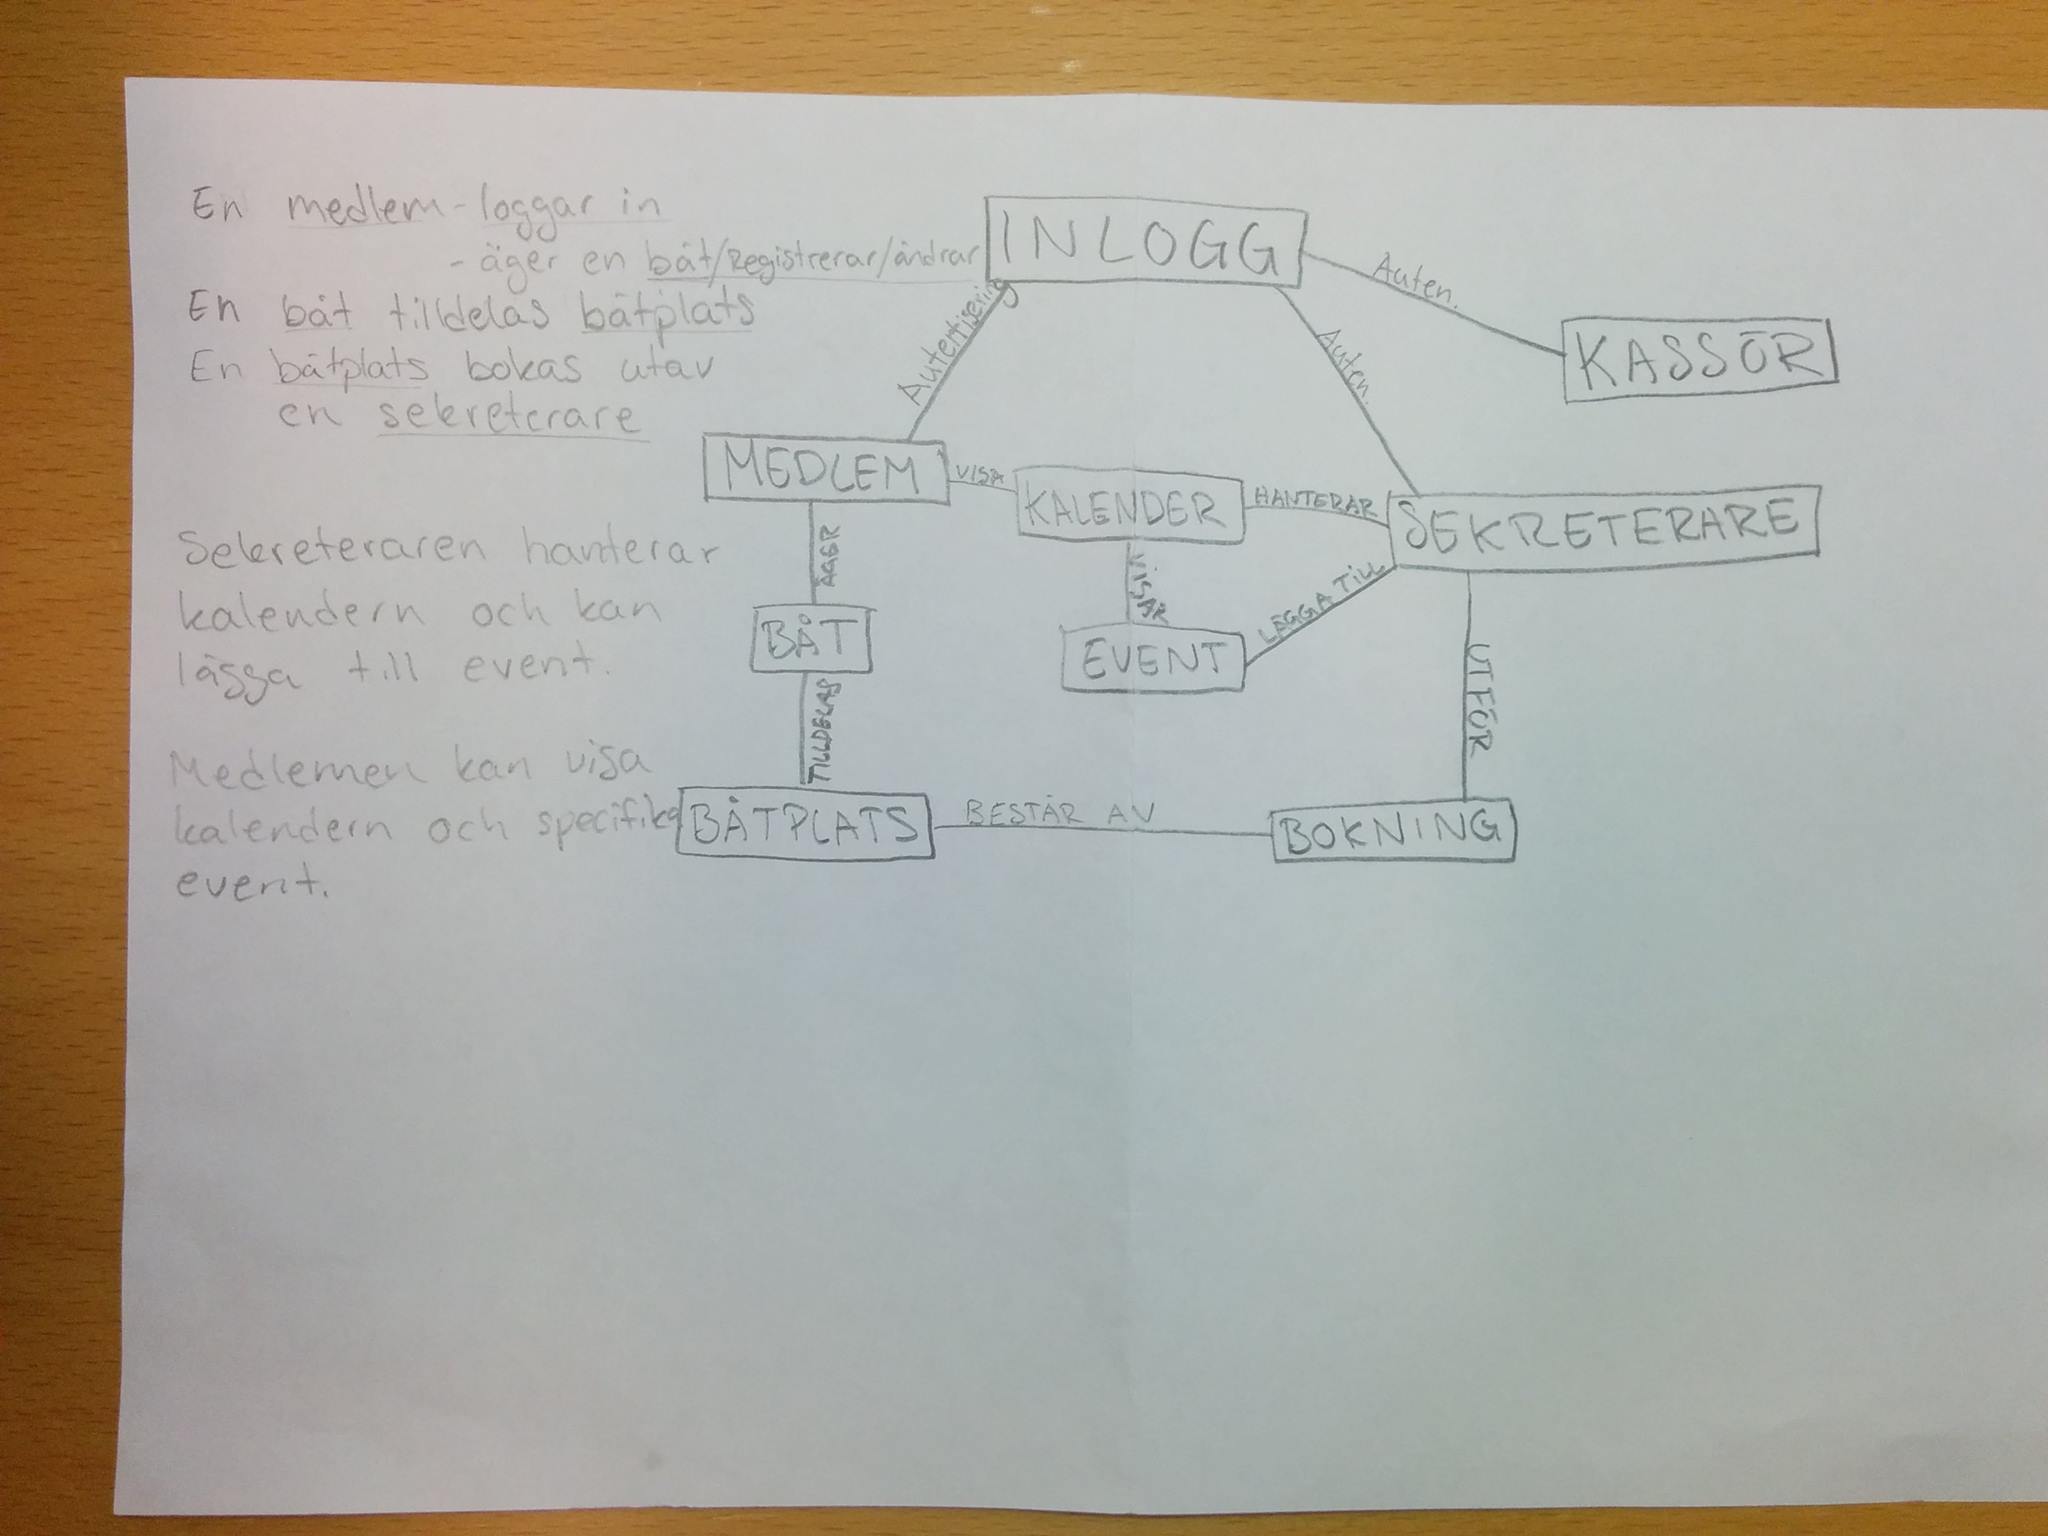 En medlem - loggar in
- äger en båt/Registrerar/ändrar
En båt tilldelas båtplats
En båtplats bokas utav
en sekreterare
Sekreteraren hanterar
kalendern och kan
lägga till event.
Medlemen kan visa
kalendern och specifika
event.
INLOGG
Auten.
KASSÖR
Autentisering
Auten.
MEDLEM
VISA
KALENDER
HANTERAR
SEKRETERARE
ÄGER
VISAR
LÄGGA TILL
BÅT
EVENT
TILLDELAS
UTFÖR
BÅTPLATS
BESTÅR AV
BOKNING